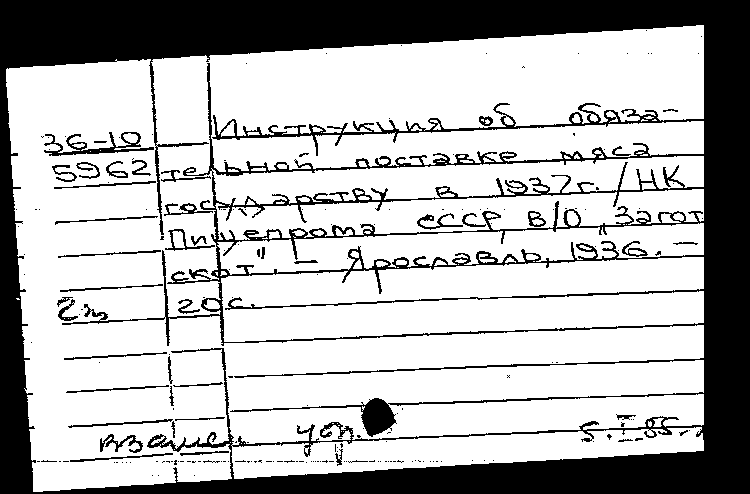 36-10 Инструкция об обяза-
5962 тельной поставке мяса
государству в 1937г. /НК
Пищепрома СССР, В/О „Загот
скот". – Ярославль, 1936. –
2п 20с.
взамен утр. 5.I.85.